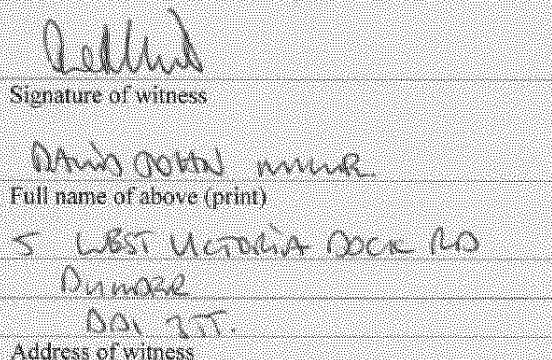 Signature of witness
DAVID JOHN MUIR
Full name of above (print)
5 WEST VICTORIA DOCK RD
DUNDEE
DD1 3JT.
Address of witness